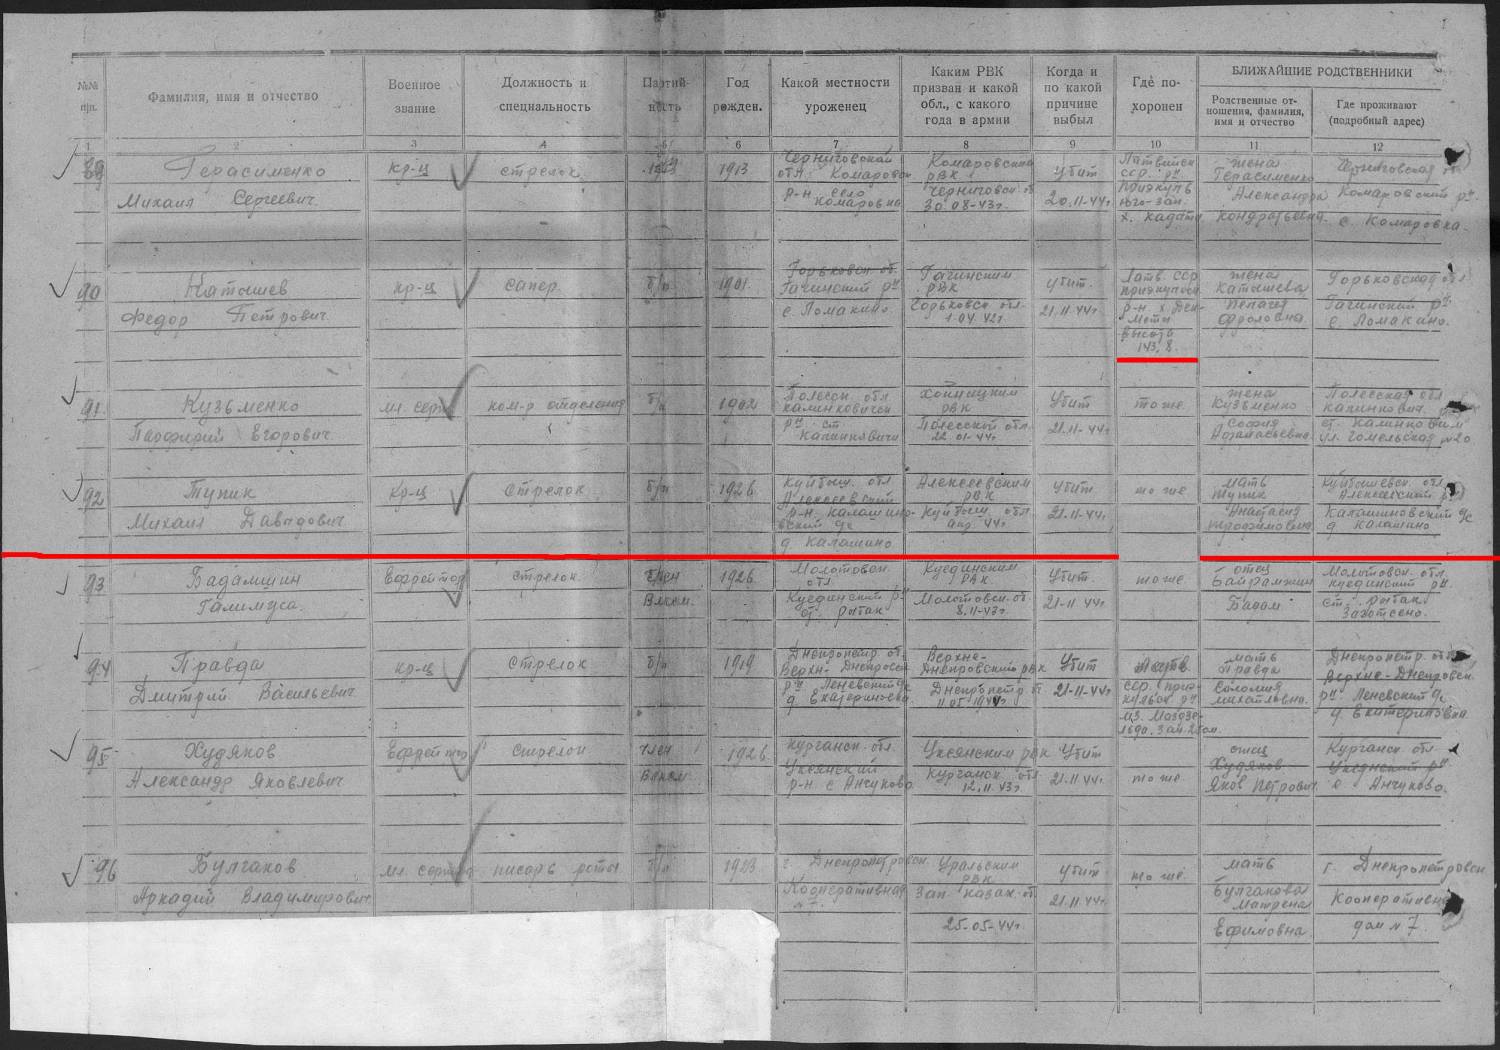 №№ п/п.
Фамилия, имя и отчество
Военное звание
Должность и специальность
Партий-ность
Год рожден.
Какой местности уроженец
Каким РВК призван и какой обл., с какого года в армии
Когда и по какой причине выбыл
Где по-хоронен
БЛИЖАЙШИЕ РОДСТВЕННИКИ
Родственные от-ношения, фамилия, имя и отчество
Где проживают (подробный адрес)
1 2 3 4 5 6 7 8 9 10 11 12
89 Герасименко кр-ц стрелок 1913 Черниговской Комаровским убит Латвийск жена Черниговская
обл. РВК ССР
Михаил Сергеевич р-н село Черниговск 20.11-44г Герасименко Комаровский р-н
Комаровка 30.08-43г. юго-зап. Александра
х. Кондратьевна с. Комаровка
90 Каташев кр-ц сапер б/п 1901 Горьковск. об. Гагинским убит Латв. ССР жена Горьковская обл
Гагинский р-н РВК Каташева
Федор Петрович с. Ломакино Горьковск обл. 21.11-44г р-н х. Пелагея Гагинский р-н
1.04.42г. Фроловна с. Ломакино.
высота
143,8
91 Кузьменко мл. серж ком-р отделения б/п 1902 Полесск обл Хойницким Убит то же жена Полесская обл
Калинковичск РВК Кузьменко Калинкович.
Парфирий Егорович р-н ст Полесской обл. 21.11-44г София ст. Калинковичи
Калинковичи 22.01-44г. Афанасьевна ул. Гомельская №20
92 Тупик кр-ц стрелок б/п 1926 Куйбыш. обл Алексеевским Убит то же мать Куйбышевск. обл
Алексеевский РВК Тупик Алексеевский р-н
Михаил Давыдович р-н. Калашино- Куйбыш. обл. 21.11-44г Анастасия Калашиновский с/с
вский с/с апр. 44г Трофимовна д Калашино
д Калашино
93 Бадамшин Ефрейтор стрелок член 1926 Молотовск. Куединским Убит. то же отец Молотовск. обл
обл РВК Куединский р-н
Галимуса Влксм. Куединский р-н Молотовск. об. 21-11 44г Бадам ст. Рытак
ст. Рытак 8.11-43г. Заготсено.
94 Правда кр-ц стрелок б/п 1919 Днепропетр. об. Верхне- Убит Латв. мать Днепропетр. обл
Верхн-Днепровск Днепровским РВК Правда Верхне-Днепровск.
Дмитрий Васильевич р-н Леневский с/с Днепропетр. о 21-11-44г ССР. Соломия р-н Леневский с/с
д Екатериновка 11.05.1944г Михайловна. д Екатериновка.
95 Худяков Ефрейтор стрелок член 1926 Курганск. обл. Уксянским РВК Убит отец Курганск обл
Уксянский Курганск обл Худяков Уксянский р-н
Александр Яковлевич Влксм р-н с Анчуково 12.11.43г. 21.11 44г то же Яков Петрович с Анчуково.
96 Булгаков мл. сержан писарь роты б/п 1923 г. Днепропетровск Уральским убит то же мать г. Днепропетровск
РВК
Аркадий Владимирович Кооперативная Зап-Казах-об 21.11.44г Булгакова Кооперативн
№7. Матрена
25-05-44г. Ефимовна дом №7.